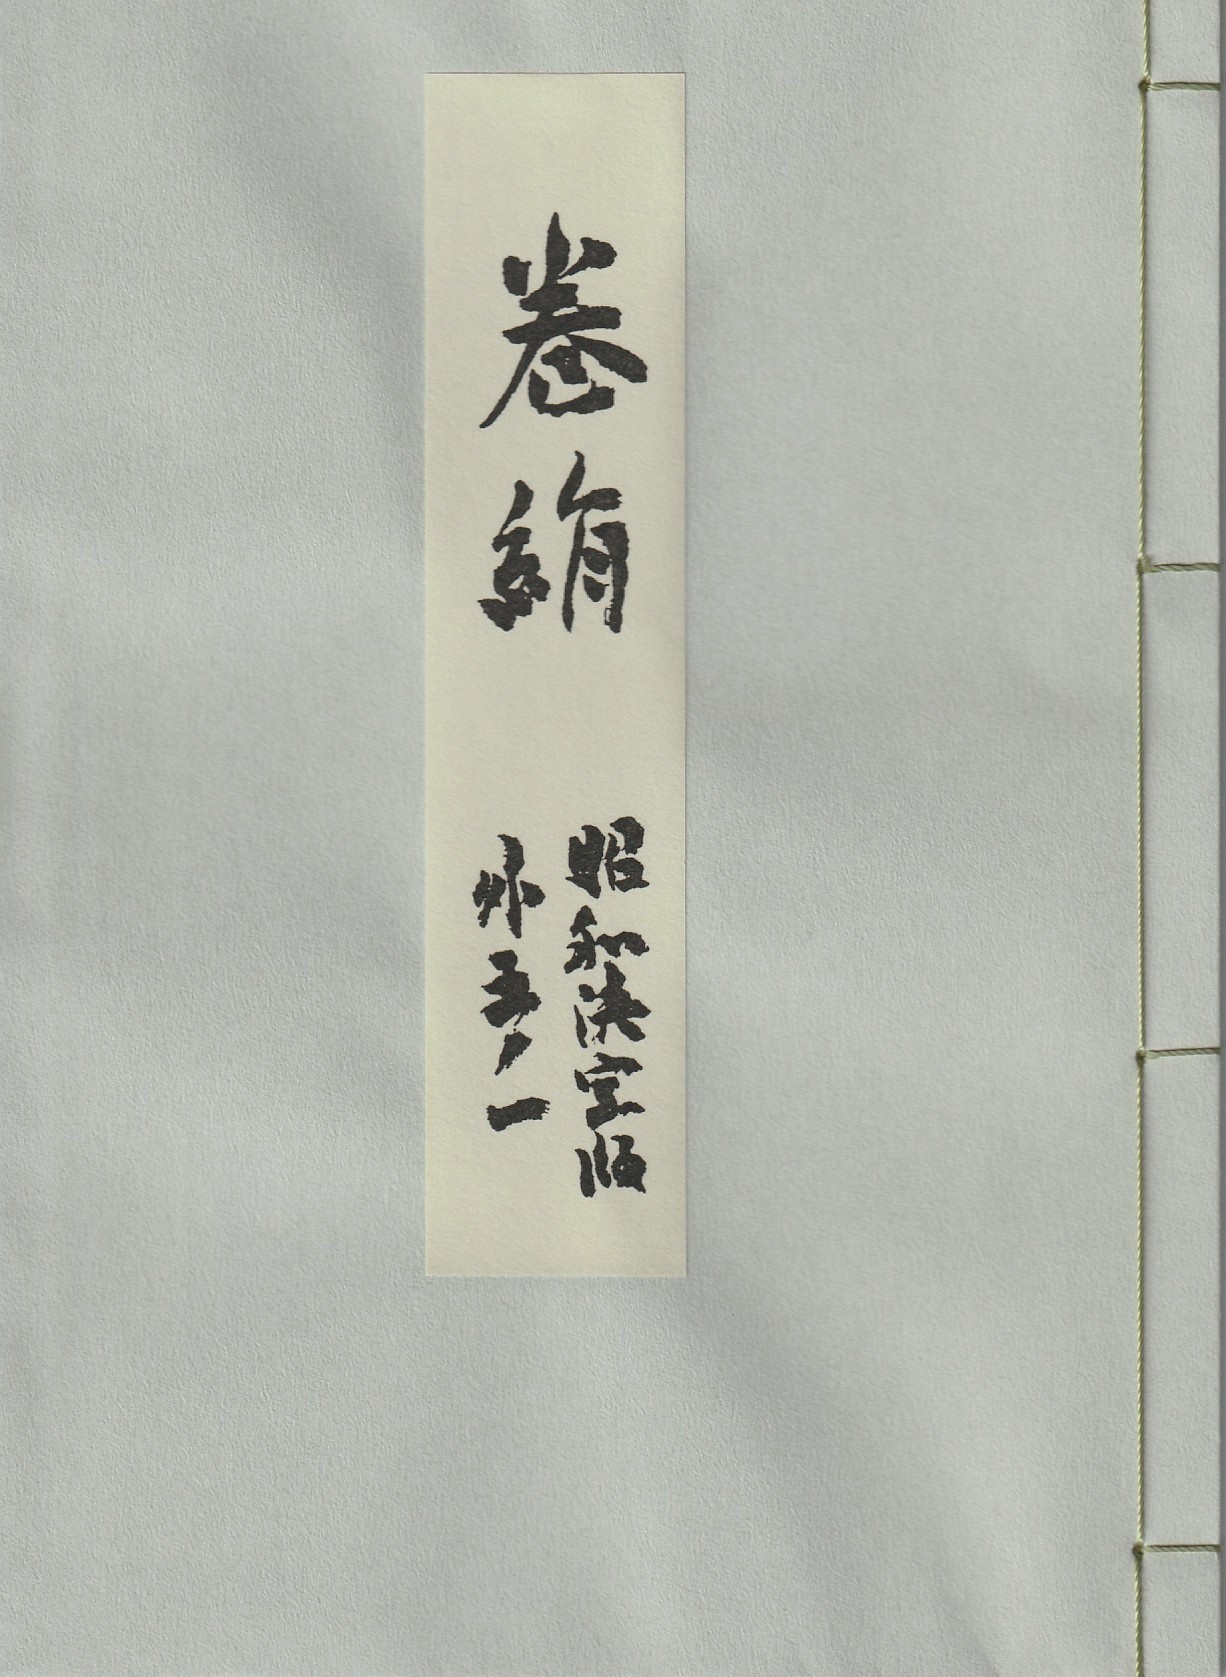 巻絹
昭和決定版
外五ノ一